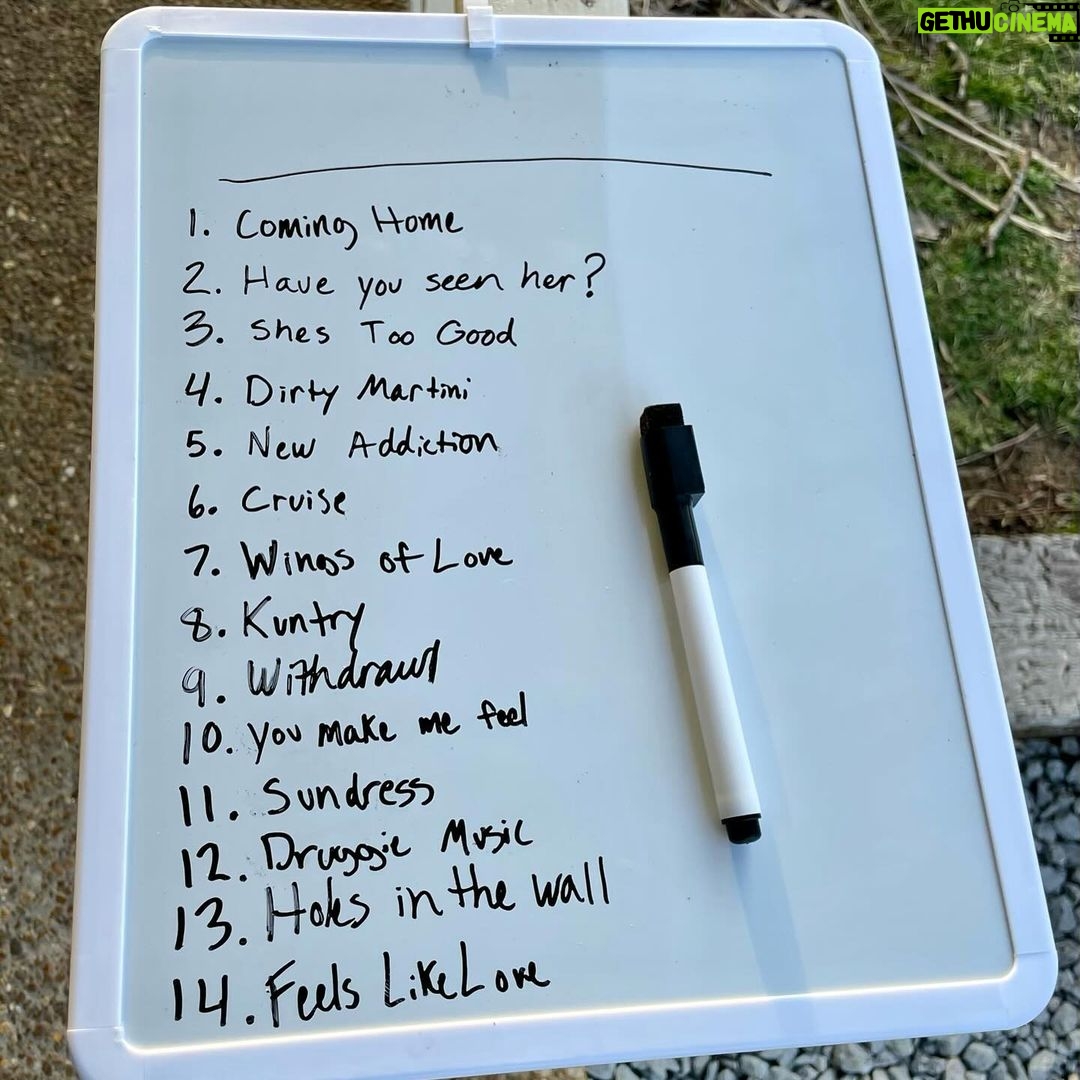 GETHUCINEMA
1. Coming Home
2. Have you seen her?
3. Shes Too Good
4. Dirty Martini
5. New Addiction
6. Cruise
7. Wings of Love
8. Kuntry
9. Withdrawl
10. You make me feel
11. Sundress
12. Druggie Music
13. Holes in the wall
14. Feels Like Love